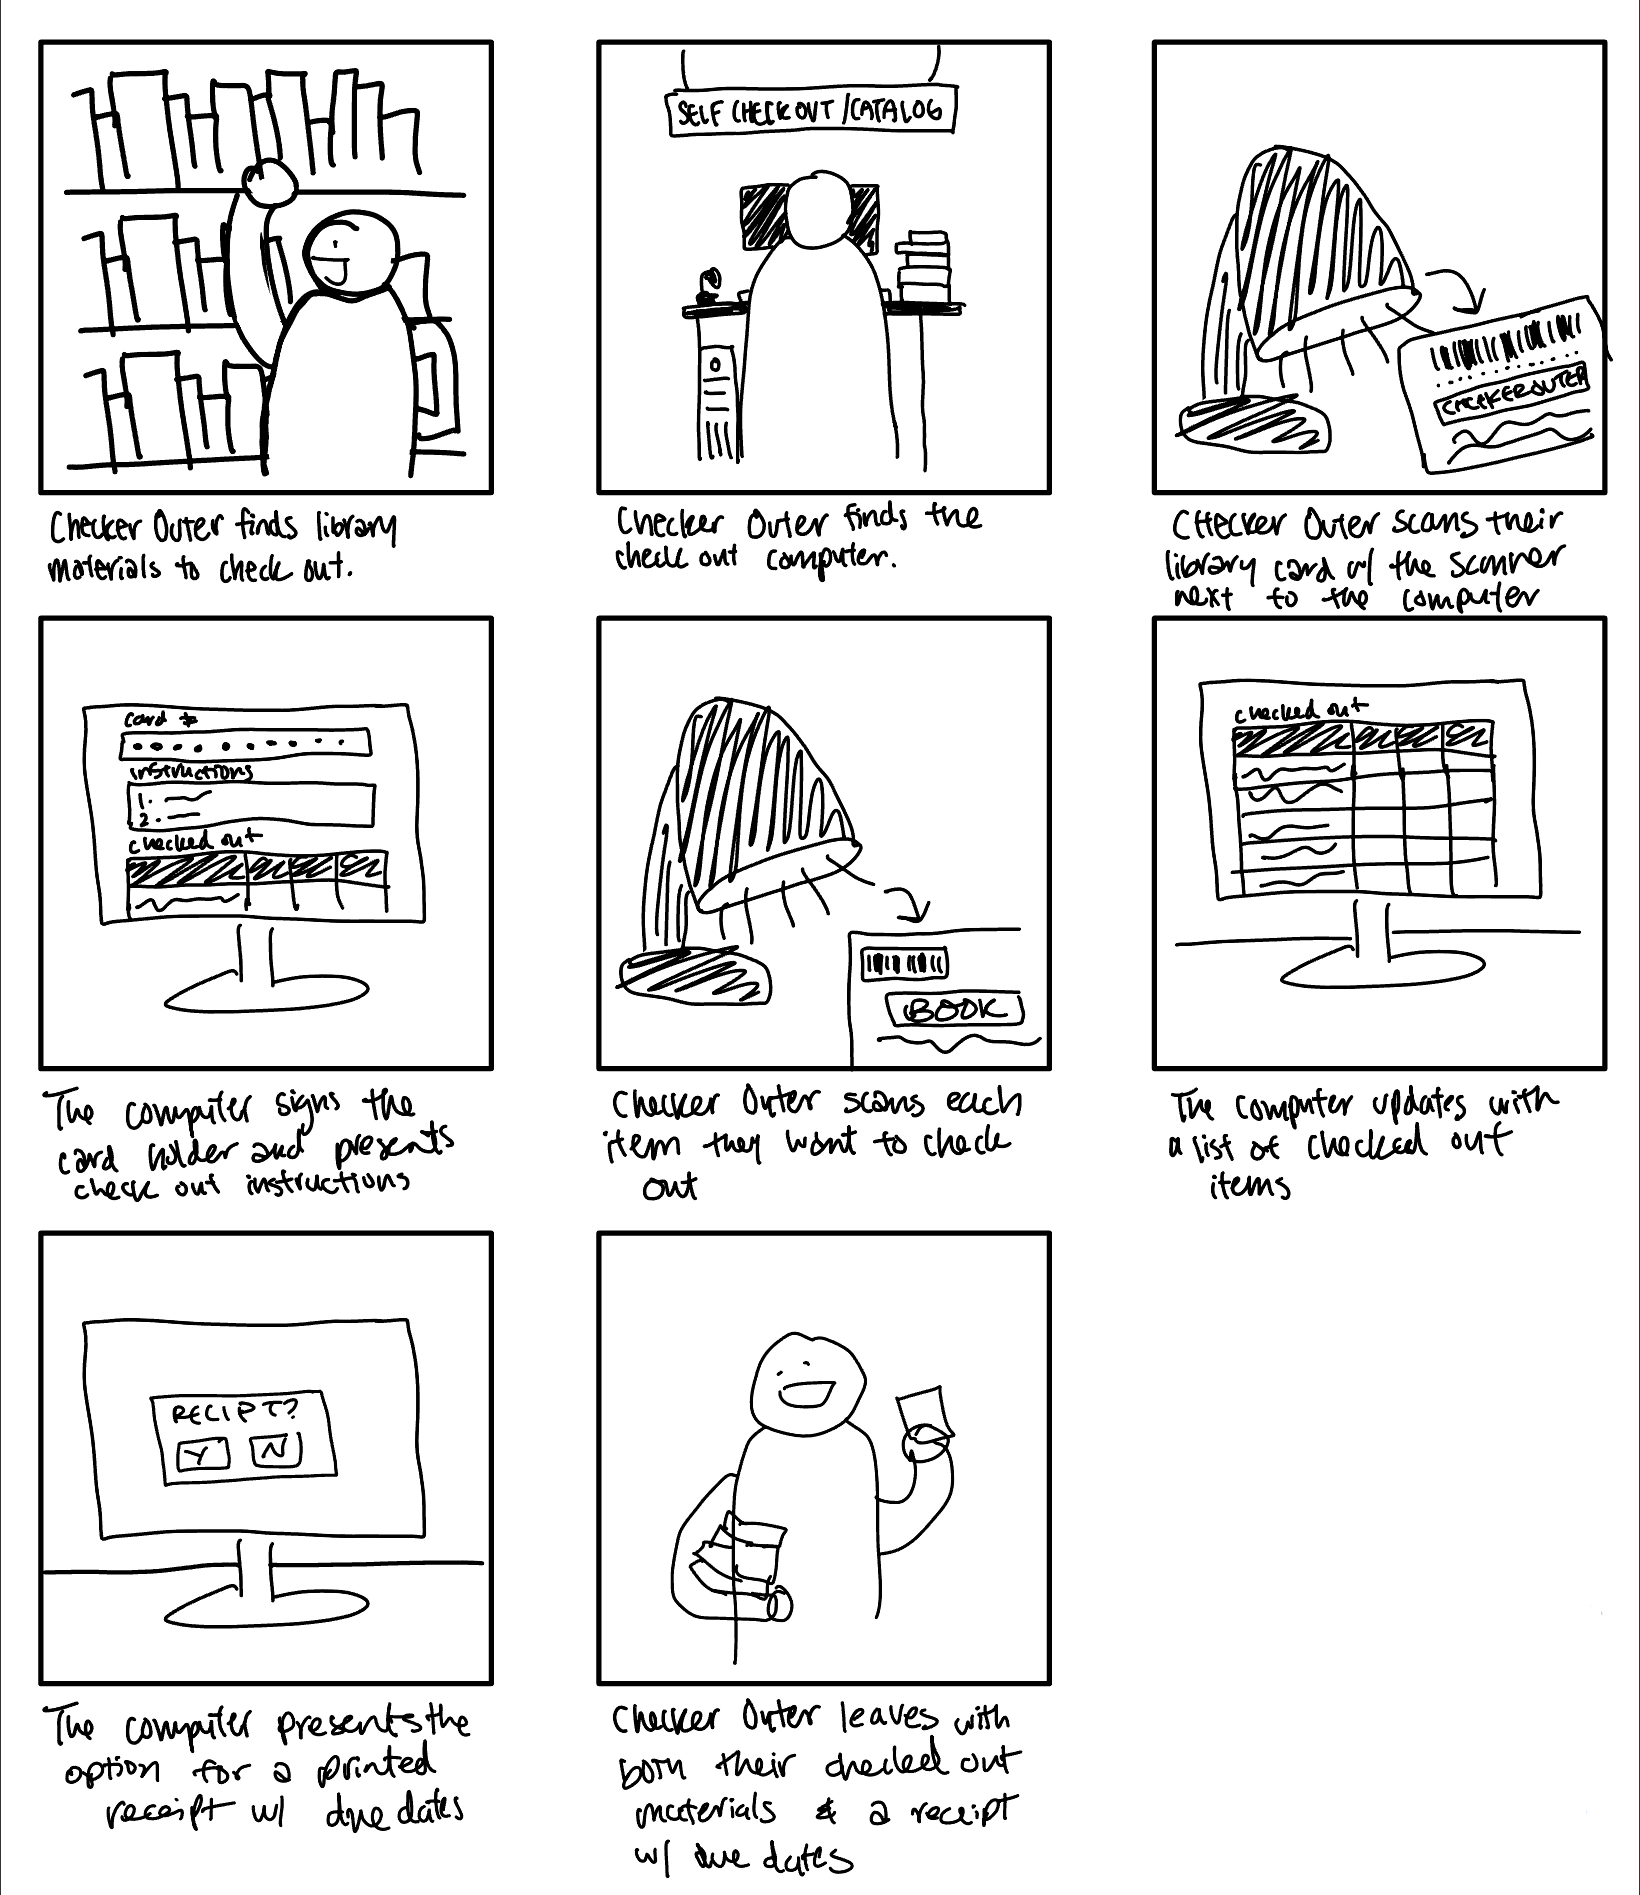 Checker Outer finds library
materials to check out.
SELF CHECK OUT / CATALOG
Checker Outer finds the
check out computer.
CHECKER OUTER
CHECKER Outer scans their
library card w/ the scanner
next to the computer
card #
instructions
1.
2.
checked out
The computer signs the
card holder and presents
check out instructions
BOOK
Checker Outer scans each
item they want to check
out
checked out
The computer updates with
a list of checked out
items
RECIPT?
Y N
The computer presents the
option for a printed
receipt w/ due dates
Checker Outer leaves with
both their checked out
materials & a receipt
w/ due dates